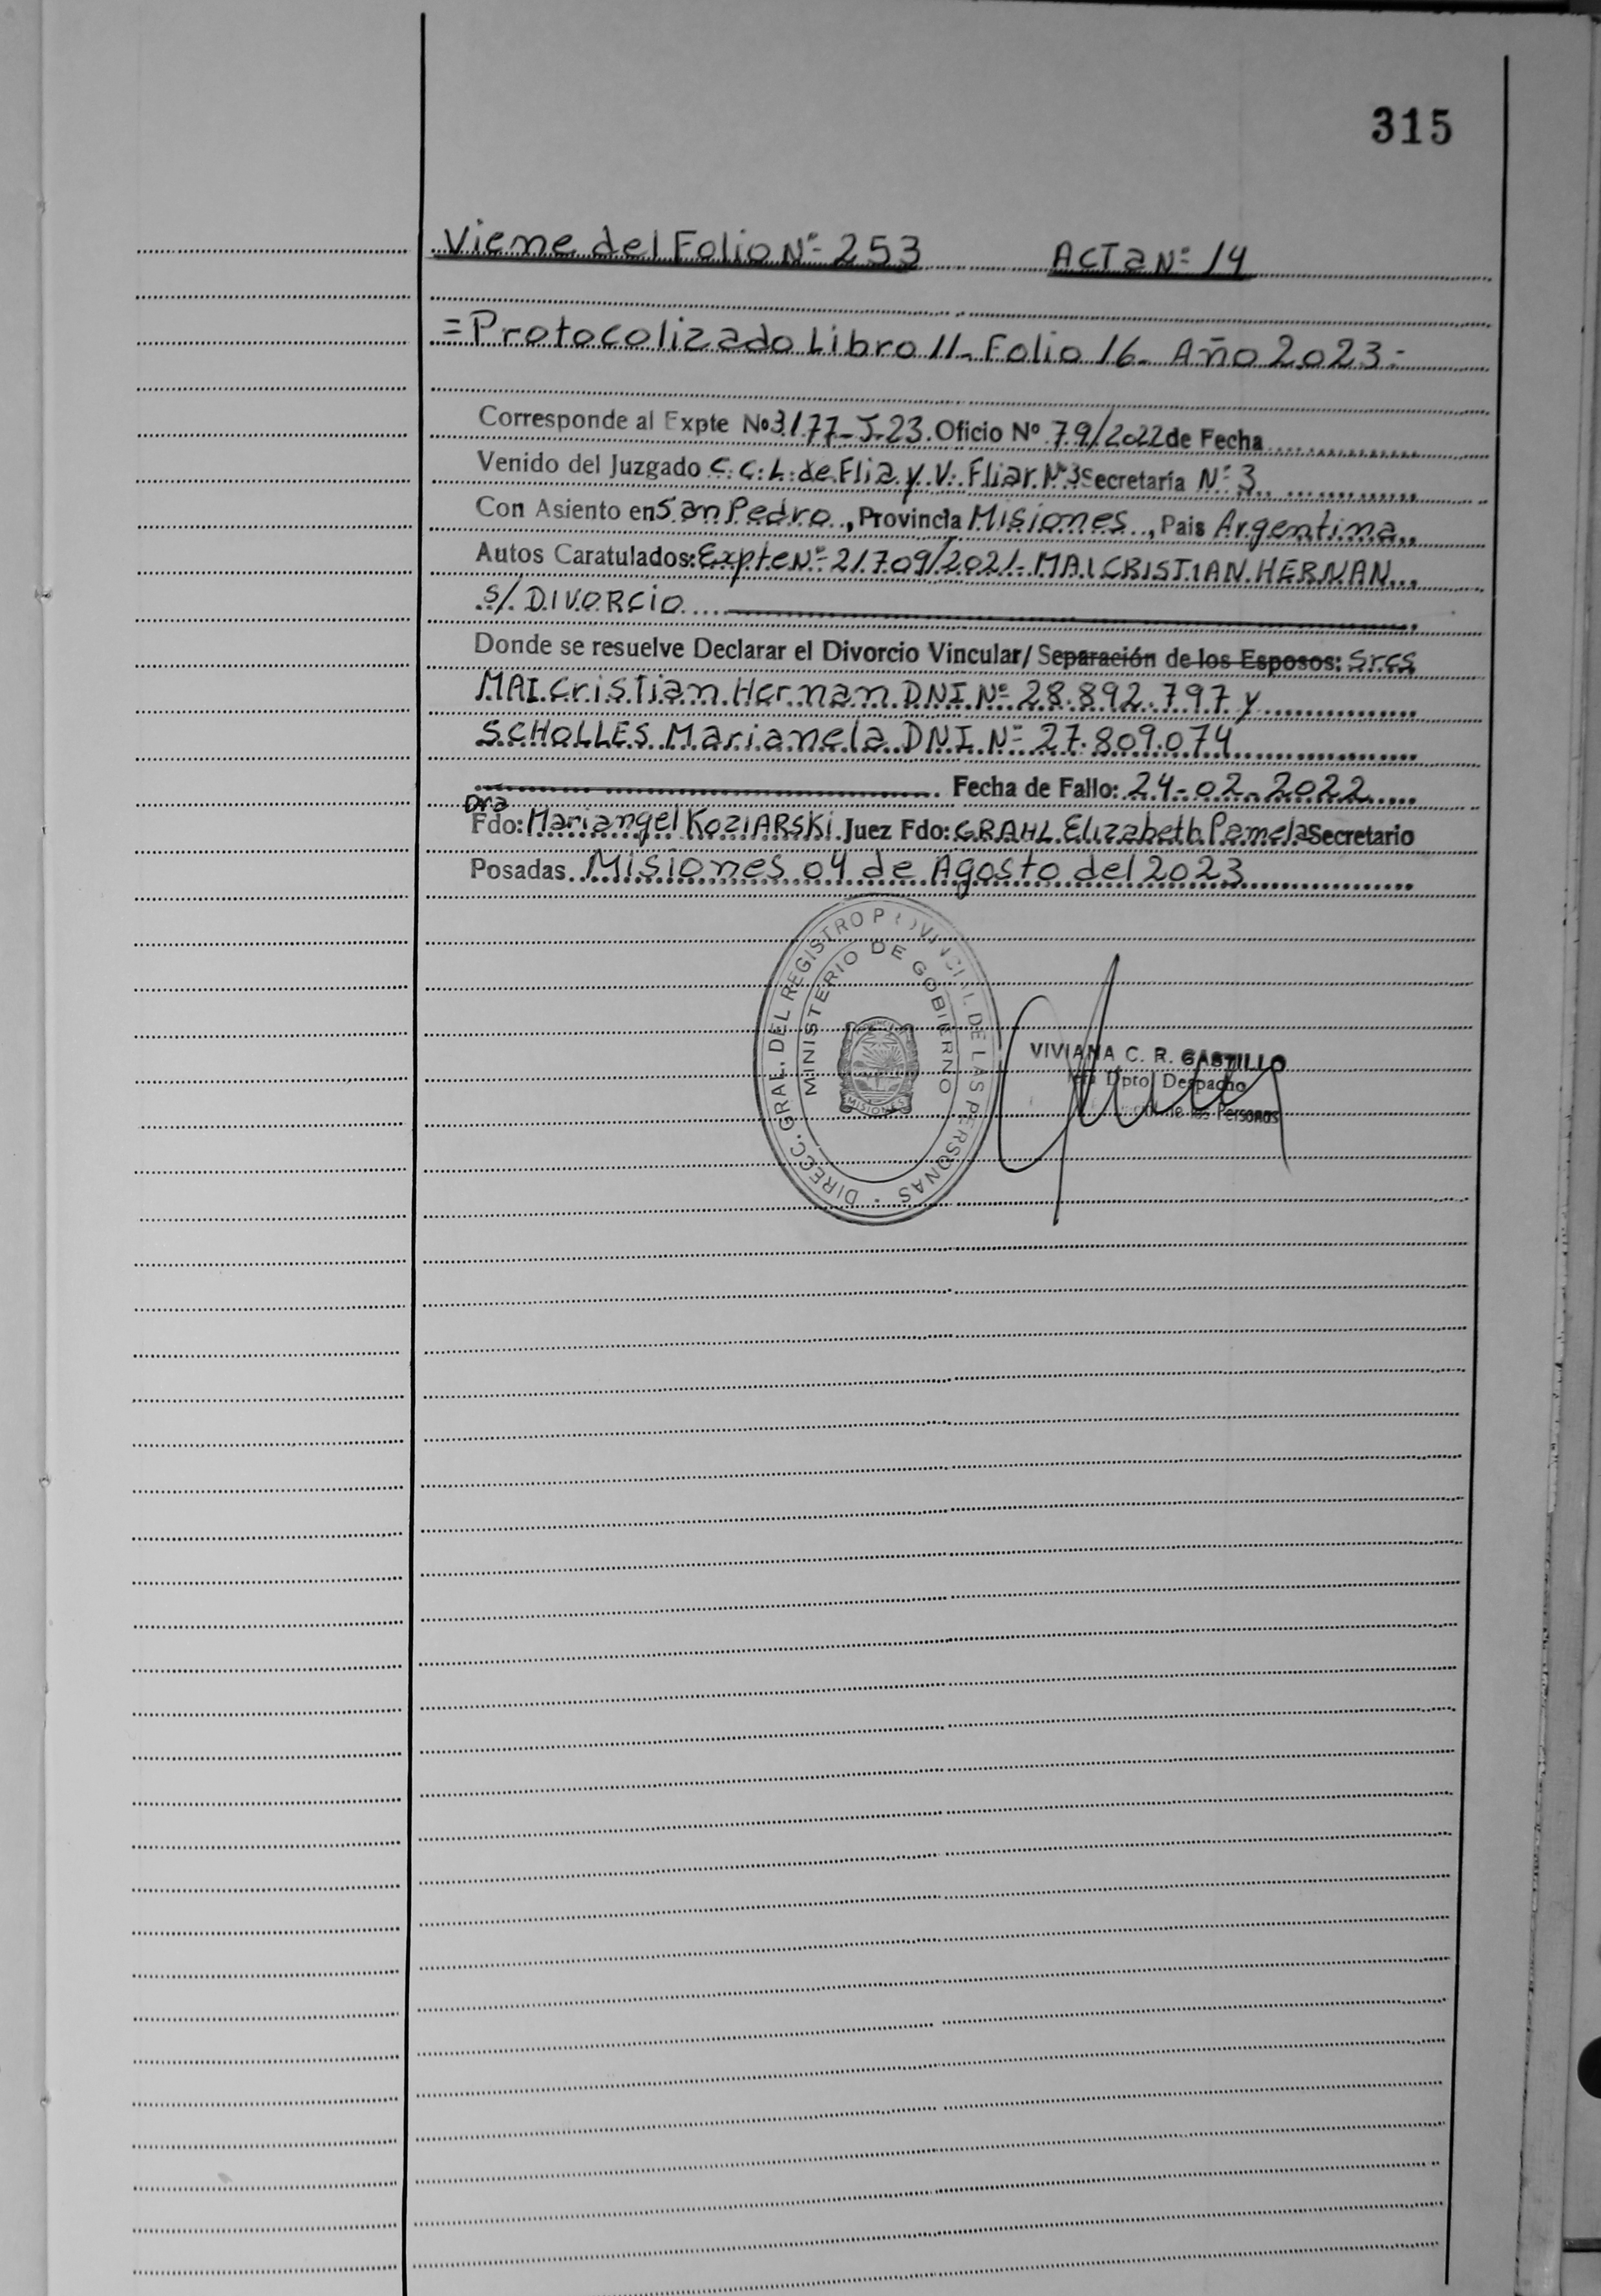 315
Viene del Folio Nº 253 ACTA Nº 14
=Protocolizado Libro 11- Folio 16- Año 2023=
Corresponde al Expte Nº 3177-J-23. Oficio Nº 79/2022 de Fecha
Venido del Juzgado C. C. L. de Flia y V. Fliar. Nº3 Secretaría Nº 3
Con Asiento en San Pedro, Provincia Misiones, Pais Argentina
Autos Caratulados: Expte Nº 21709/2021- MAI CRISTIAN HERNAN
S/ DIVORCIO
Donde se resuelve Declarar el Divorcio Vincular/ Separación de los Esposos: Sres
MAI Cristian Hernan DNI Nº 28.892.797 y
SCHOLLES Marianela DNI Nº 27.809.074
Fecha de Fallo: 24-02-2022
Dra
Fdo: Mariangel KOZIARSKI Juez Fdo: GRAHL Elizabeth Pamela Secretario
Posadas. Misiones 04 de Agosto del 2023
DIRECC. GRAL. DEL REGISTRO PROVINCIAL DE LAS PERSONAS
MINISTERIO DE GOBIERNO
MISIONES
VIVIANA C. R. CASTILLO
Dpto. Despacho
de las Personas